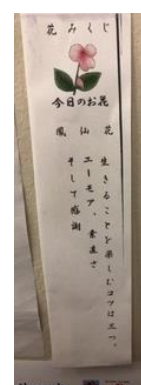 花みくじ
今日のお花
鳳仙花
生きることを楽しむコツは三つ。
ユーモア、素直さ
そして感謝